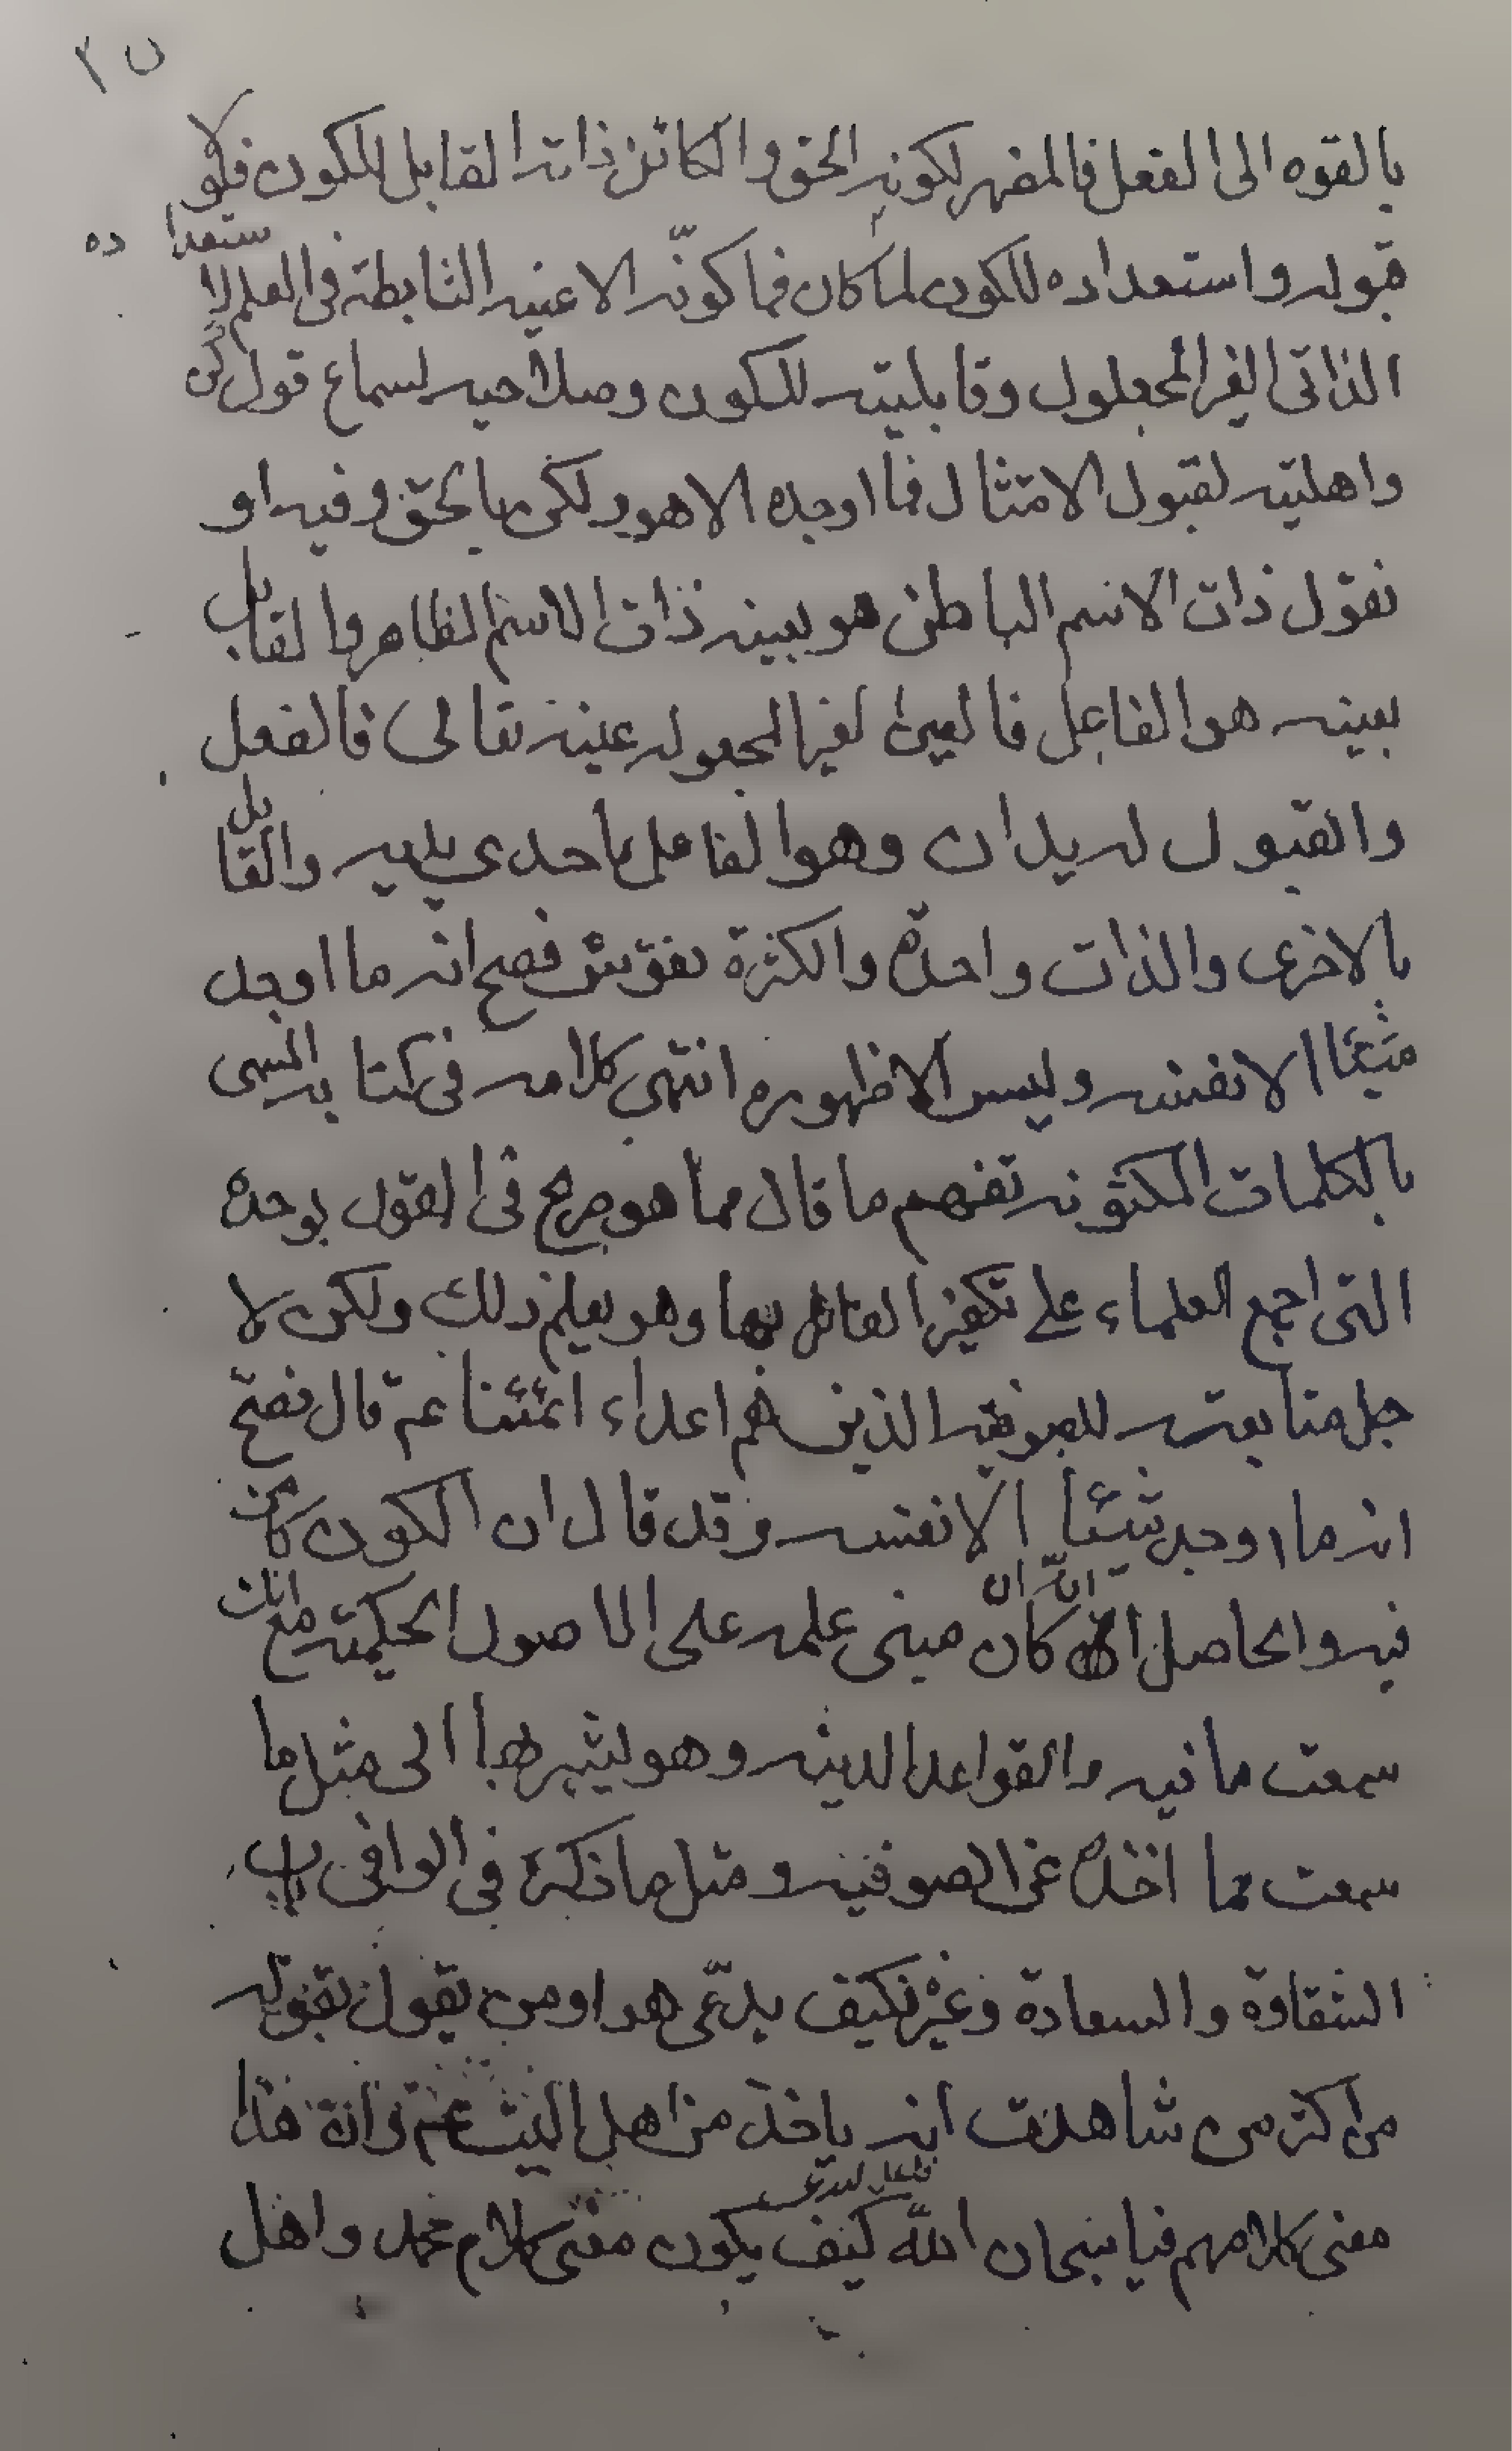 بالقوه الى الفعل فالمظهر لكونه الحق والكائن ذاته القابل للكون فلولا
قبوله واستعداده للكون لما كان فما كونه الا عينه الثابطة فى العلم لاستعداده
الذاتى الغير المجعول وقابليته للكون وصلاحيه لسماع قول كن
واهليته لقبول الامتثال فما اوجده الا هو ولكن بالحق وفيه او
نقول ذات الاسم الباطن هو بعينه ذات الاسم الظاهر والقابل
بعينه هو الفاعل فالعين الغير المجعوله عينه تعالى فالفعل
والقبول له يدان وهو الفاعل باحدى يديه والقابل
بالاخرى والذات واحدة والكثرة نقوش فصح انه ما اوجد
شيئا الا نفسه وليس الا ظهوره انتهى كلامه فى كتابه المسمى
بالكلمات المكنونه تفهم ما قال مما هو صريح فى القول بوحده
التى اجمع العلماء على تكفير القائل بها وهو يعلم ذلك ولكن لا
جل متابعته للصوفيه الذين هم اعداء ائمتنا عم قال فصح
انه ما اوجد شيئا الا نفسه وقد قال ان الكون كامن
فيه والحاصل ان الله كان مبنى علمه على الاصول الحكيمته مع انك
سمعت ما فيه والقواعد الدينه وهو يشير بها الى مثل ما
سمعت مما اخذه عن الصوفيه ومثل ما ذكره فى الوافى باب
الشقاوة والسعادة وغيره فكيف يدعى هذا ومن يقول بقوله
من اكثر من شاهدت انه ياخذ من اهل البيت عم وان هذا
فاعل ليدعى
معنى كلامهم فيا سبحان الله كيف يكون معنى كلام محمد واهل